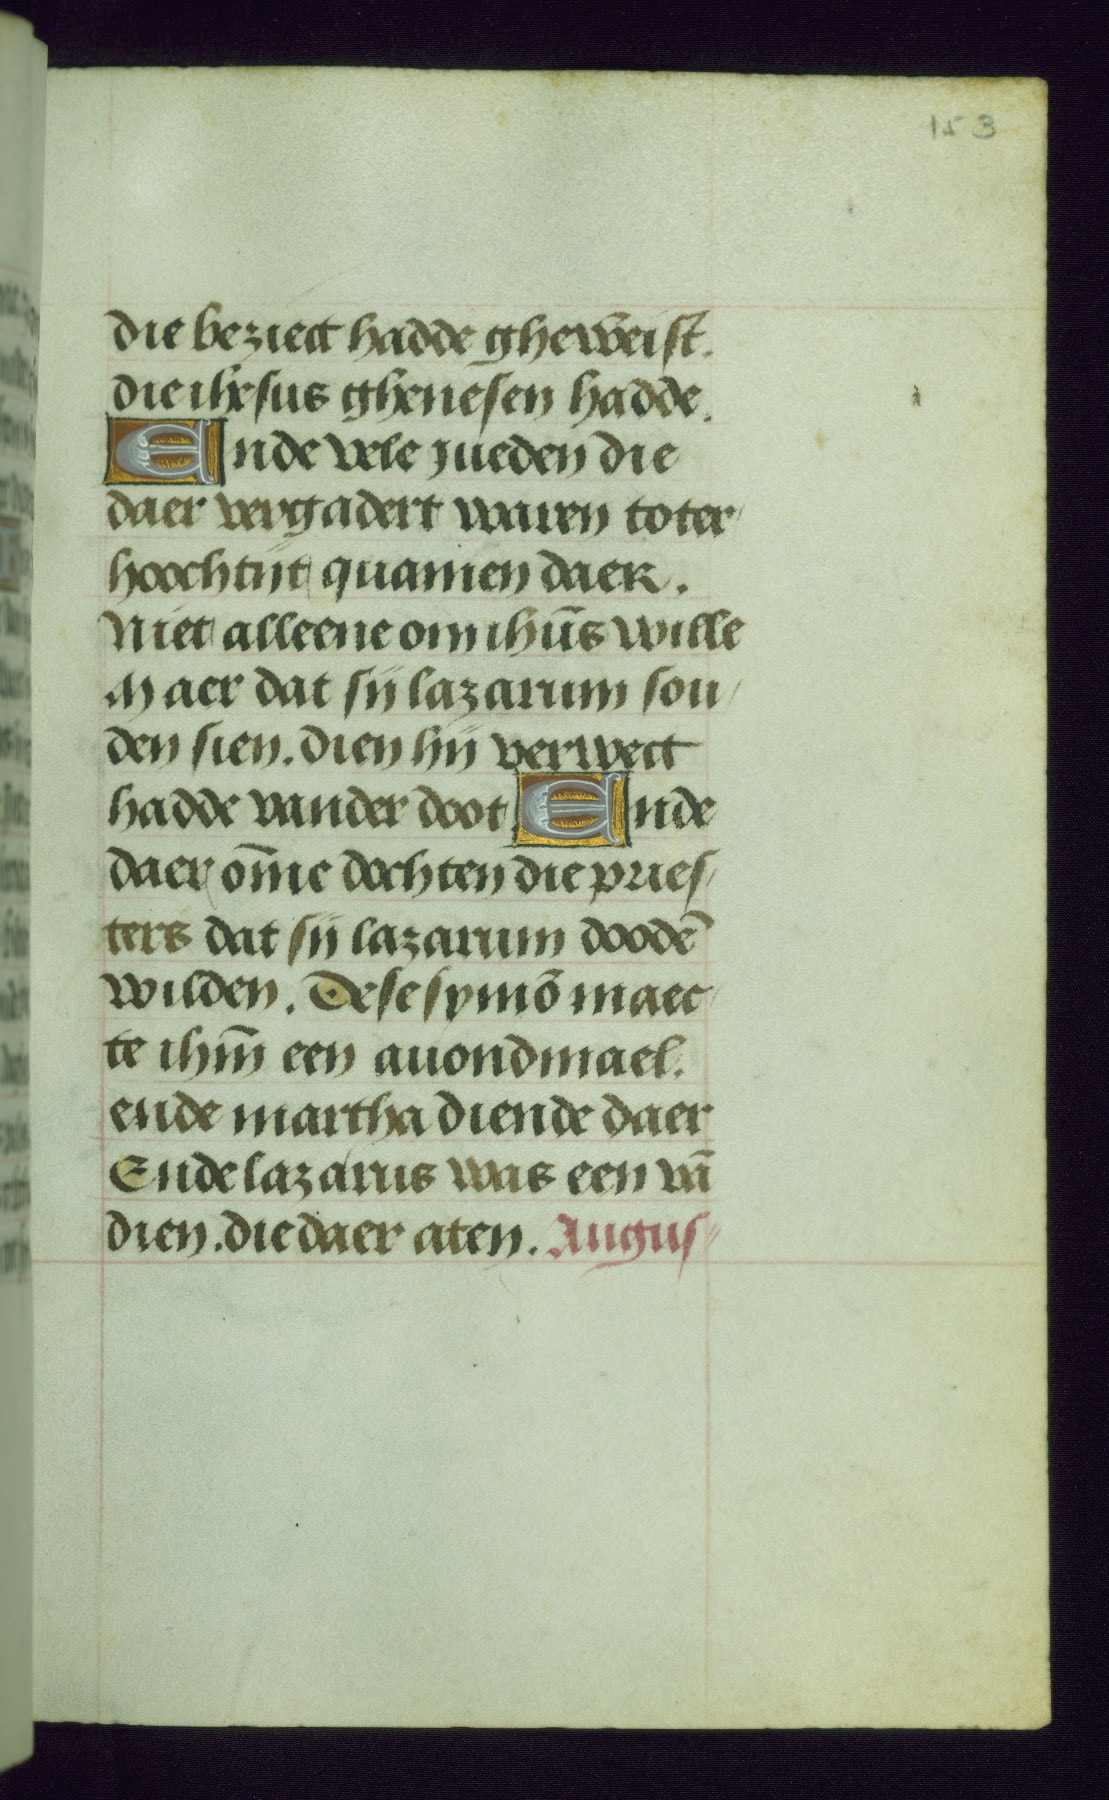 153
die beziect hadde gheweist.
die ihesus ghenesen hadde.
Ende vele jueden die
daer vergadert waren toter
hoochtijt quamen daer.
Niet alleene om ihūs wille
Maer dat sij lazarum sou/
den sien. dien hij verwect
hadde vander doot Ende
daer om̄e dochten die pries/
ters dat sij lazarum doodē
wilden. Dese symō maec/
te ihm̄ een auondmael.
ende martha diende daer
Ende lazarus was een vā
dien. die daer aten. Augus/